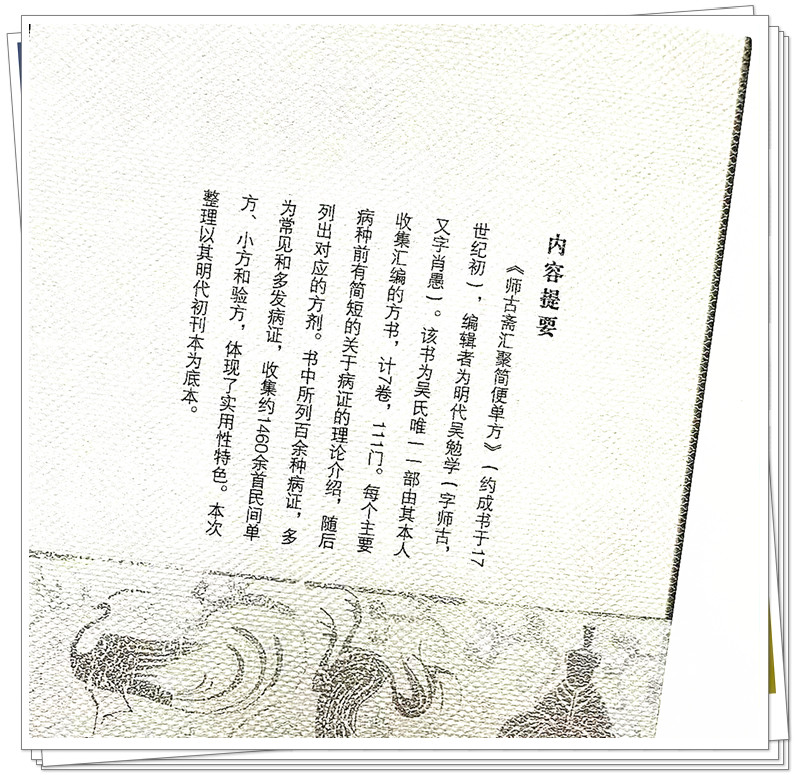 内容提要
《师古斋汇聚简便单方》(约成书于17
世纪初),编辑者为明代吴勉学(字师古,
又字肖愚)。该书为吴氏唯一一部由其本人
收集汇编的方书,计7卷,111门。每个主要
病种前有简短的关于病证的理论介绍,随后
列出对应的方剂。书中所列百余种病证,多
为常见和多发病证,收集约1460余首民间单
方、小方和验方,体现了实用性特色。本次
整理以其明代初刊本为底本。